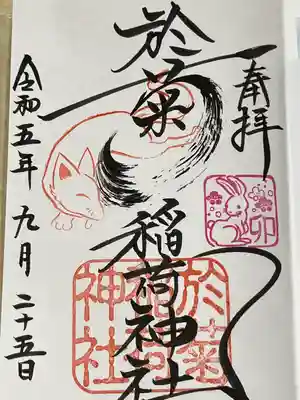 奉拝
卯
於菊
稲荷神社
於菊
稲荷
神社
令和五年 九月 二十五日